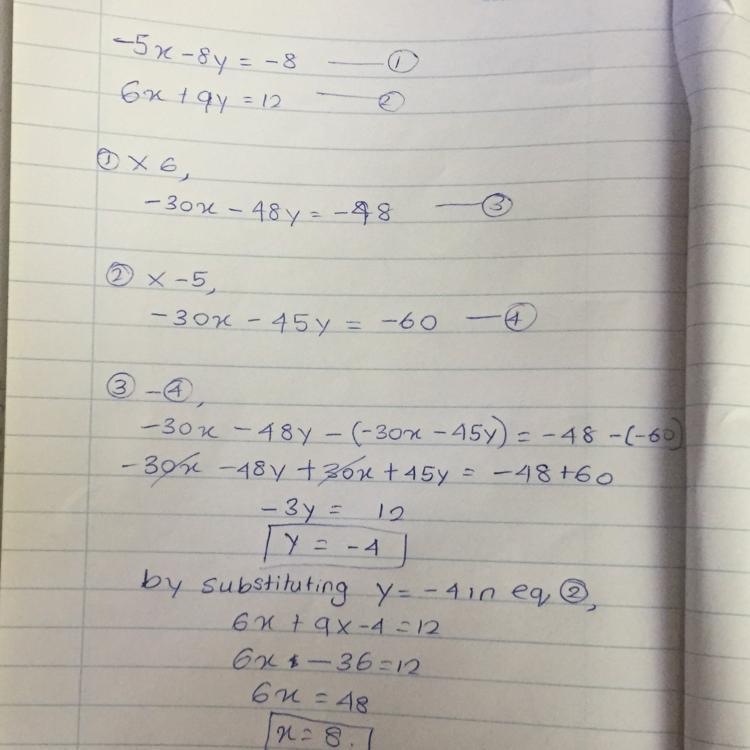 -5x - 8y = -8 —— ①
6x + 9y = 12 —— ②
① × 6,
-30x - 48y = -48 —— ③
② × -5,
-30x - 45y = -60 —— ④
③ - ④,
-30x - 48y - (-30x - 45y) = -48 - (-60)
-30x - 48y + 30x + 45y = -48 + 60
-3y = 12
y = -4
by substituting y = -4 in eq ②,
6x + 9x-4 = 12
6x - 36 = 12
6x = 48
x = 8.